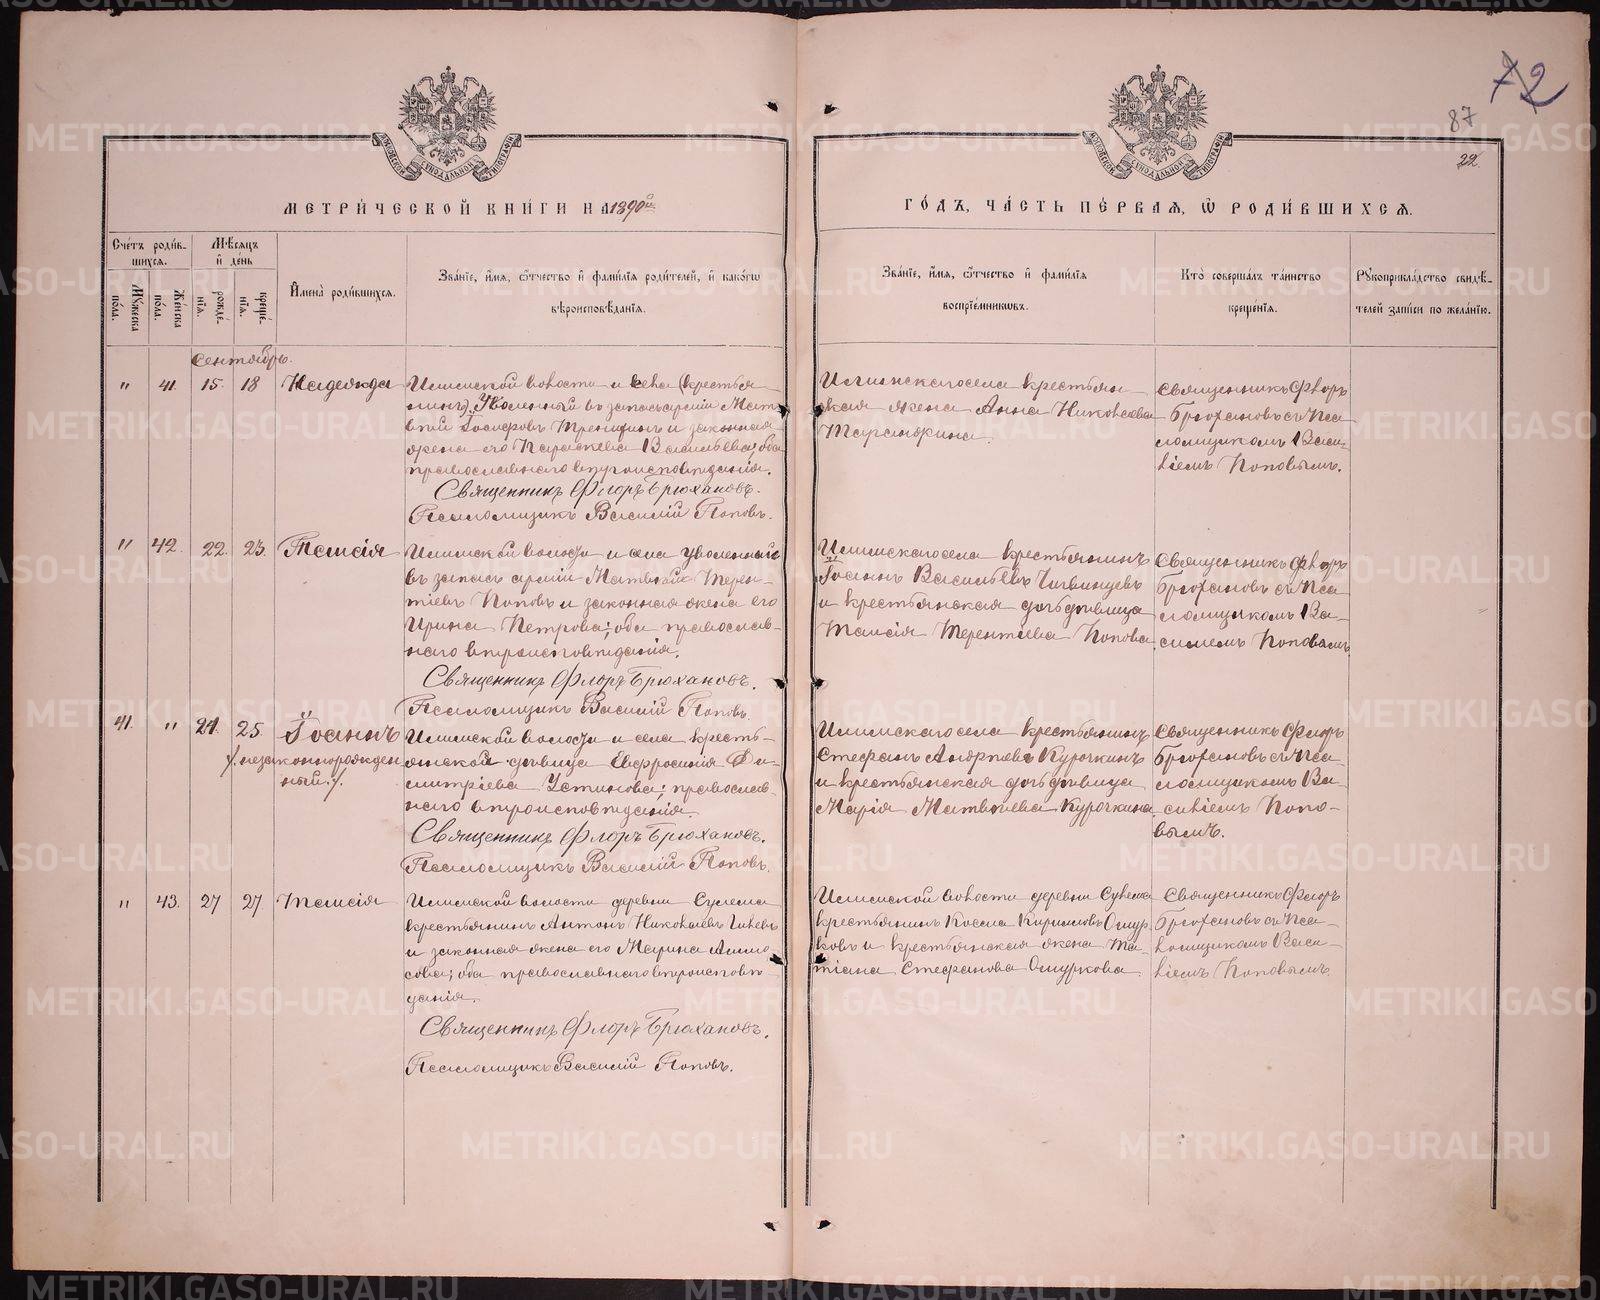 72
87
22.
МЕТРИ́ЧЕСКОЙ КНИ́ГИ НА 1890й
ГО́ДЪ, ЧА́СТЬ ПЕ́РВАЯ, Ѽ РОДИ́ВШИХСѦ.
Сче́тъ роди́в-
шихся.
Му́жеска
по́ла.
Же́нска
по́ла.
Мѣ́сяцъ
и де́нь
рожде́-
нїя.
креще́-
нїя.
Имена̀ роди́вшихся.
Зва́нїе, и́мя, ѻ́тчество и фами́лїя роди́телей, и како́гѡ
вѣроисповѣ́данїя.
Зва́нїе, и́мя, ѻ́тчество и фами́лїя
воспрїе́мникѡвъ.
Кто̀ соверша́лъ та́инство
креще́нїя.
Рꙋкоприкла́дство свидѣ́-
телей за́писи по жела́нїю.
Сентябрь.
" 41. 15. 18 Надежда
Илимской волости и села (крестья-
нинъ) Уволенный въ запасъ арміи Мат-
вѣй Іосифовъ и законная
жена его Параскева Васильева; оба
православнаго вѣроисповѣданія.
Священникъ Флоръ Брюхановъ.
Псаломщикъ Василій Поповъ.
Илимскаго села крестьян-
ская жена Анна Николаева
Таранжина.
Священникъ Флоръ
Брюхановъ съ Пса-
ломщикомъ Васи-
ліемъ Поповымъ.
" 42. 22. 23. Таисія
Илимской волости и села уволенный
въ запас арміи Матвѣй Терен-
тіевъ Поповъ и законная жена его
Ирина Петрова; оба православ-
наго вѣроисповѣданія.
Священникъ Флоръ Брюхановъ.
Псаломщикъ Василій Поповъ.
Илимскаго села крестьянинъ
Іоаннъ Васильевъ Чигвинцевъ
и крестьянская дочь дѣвица
Таисія Терентіева Попова.
Священникъ Флоръ
Брюхановъ съ Пса-
ломщикомъ Ва-
силіемъ Поповымъ.
41. " 24. 25. Іоаннъ
/:незаконнорожден
ный:/.
Илимской волости и села кресть-
янской дѣвица Евфросинія Ди-
митріева Устинова; православ-
наго вѣроисповѣданія.
Священникъ Флоръ Брюхановъ.
Псаломщикъ Василій Поповъ.
Илимскаго села крестьянинъ
Стефанъ Андреевъ Курочкинъ
и крестьянская дочь дѣвица
Марія Матвѣева Курочкина.
Священникъ Флоръ
Брюхановъ съ Пса-
ломщикомъ Ва-
силіемъ Попо-
вымъ.
" 43. 27 27 Таисія
Илимской волости деревни Сулема
крестьянинъ Антонъ Николаевъ
и законная жена его Марина
оба православнаго вѣроисповѣ-
данія.
Священникъ Флоръ Брюхановъ.
Псаломщикъ Василій Поповъ.
Илимской волости деревни Сулема
крестьянинъ Косма Кириловъ Ошур-
ковъ и крестьянская жена Та-
тіана Стефанова Ошуркова.
Священникъ Флоръ
Брюхановъ съ Пса-
ломщикомъ Васи-
ліемъ Поповымъ.
METRIKI.GASO-URAL.RU